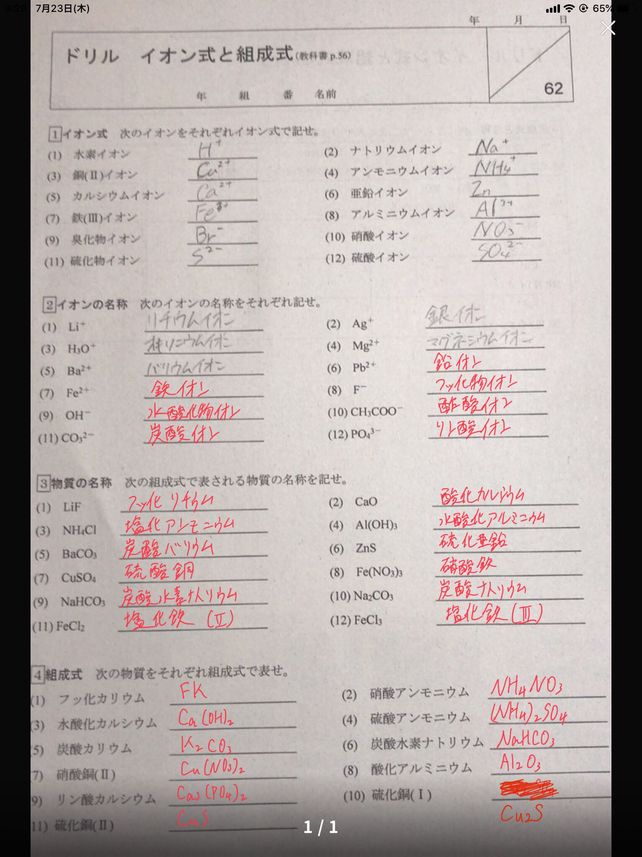 7月23日(木) 65%
年 月 日
ドリル イオン式と組成式(教科書 p.56)
年 組 番 名前
62
1 イオン式 次のイオンをそれぞれイオン式で記せ。
(1) 水素イオン H⁺ (2) ナトリウムイオン Na⁺
(3) 銅(Ⅱ)イオン Cu²⁺ (4) アンモニウムイオン NH₄⁺
(5) カルシウムイオン Ca²⁺ (6) 亜鉛イオン Zn
(7) 鉄(Ⅲ)イオン Fe³⁺ (8) アルミニウムイオン Al³⁺
(9) 臭化物イオン Br⁻ (10) 硝酸イオン NO₃⁻
(11) 硫化物イオン S²⁻ (12) 硫酸イオン SO₄²⁻
2 イオンの名称 次のイオンの名称をそれぞれ記せ。
(1) Li⁺ リチウムイオン (2) Ag⁺ 銀イオン
(3) H₃O⁺ オキソニウムイオン (4) Mg²⁺ マグネシウムイオン
(5) Ba²⁺ バリウムイオン (6) Pb²⁺ 鉛イオン
(7) Fe²⁺ 鉄イオン (8) F⁻ フッ化物イオン
(9) OH⁻ 水酸化物イオン (10) CH₃COO⁻ 酢酸イオン
(11) CO₃²⁻ 炭酸イオン (12) PO₄³⁻ リン酸イオン
3 物質の名称 次の組成式で表される物質の名称を記せ。
(1) LiF フッ化リチウム (2) CaO 酸化カルシウム
(3) NH₄Cl 塩化アンモニウム (4) Al(OH)₃ 水酸化アルミニウム
(5) BaCO₃ 炭酸バリウム (6) ZnS 硫化亜鉛
(7) CuSO₄ 硫酸銅 (8) Fe(NO₃)₃ 硝酸鉄
(9) NaHCO₃ 炭酸水素ナトリウム (10) Na₂CO₃ 炭酸ナトリウム
(11) FeCl₂ 塩化鉄(Ⅱ) (12) FeCl₃ 塩化鉄(Ⅲ)
4 組成式 次の物質をそれぞれ組成式で表せ。
(1) フッ化カリウム FK (2) 硝酸アンモニウム NH₄NO₃
(3) 水酸化カルシウム Ca(OH)₂ (4) 硫酸アンモニウム (NH₄)₂SO₄
(5) 炭酸カリウム K₂CO₃ (6) 炭酸水素ナトリウム NaHCO₃
(7) 硝酸銅(Ⅱ) Cu(NO₃)₂ (8) 酸化アルミニウム Al₂O₃
9) リン酸カルシウム Ca₃(PO₄)₂ (10) 硫化銅(Ⅰ) Cu₂S
11) 硫化銅(Ⅱ) CuS
1 / 1